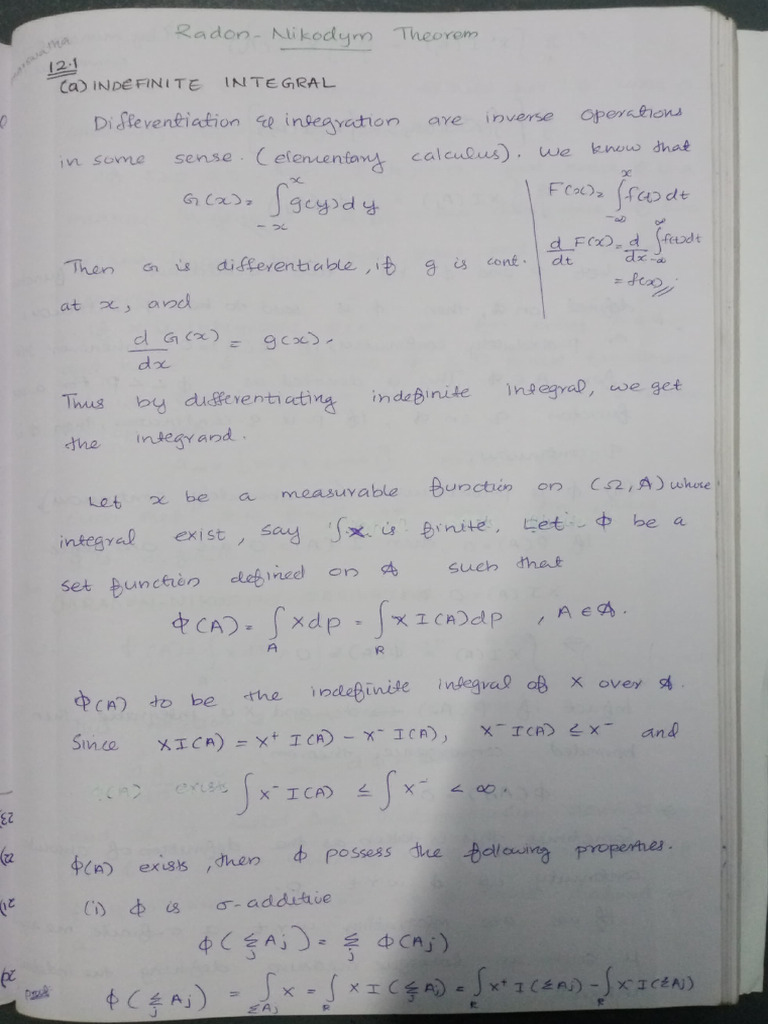 Radon-Nikodym Theorem
12.1
(a) INDEFINITE INTEGRAL
Differentiation & integration are inverse operations
in some sense. (elementary calculus). We know that
G(x) = ∫_{-x}^{x} g(y) dy
F(x) = ∫_{-∞}^{x} f(t) dt
d/dt F(x) = d/dx ∫_{-∞}^{∞} f(t) dt
= f(x)//
Then G is differentiable, if g is cont.
at x, and
d/dx G(x) = g(x).
Thus by differentiating indefinite integral, we get
the integrand.
Let x be a measurable function on (Ω, A) whose
integral exist, say ∫x is finite. Let Φ be a
set function defined on A such that
Φ(A) = ∫_A x dp = ∫_R x I(A) dp , A ∈ A.
Φ(A) to be the indefinite integral of x over A.
Since x I(A) = x⁺ I(A) - x⁻ I(A), x⁻ I(A) ≤ x⁻ and
Φ(A) exists ∫ x⁻ I(A) ≤ ∫ x⁻ < ∞
Φ(A) exists, then Φ possess the following properties.
(i) Φ is σ-additive
Φ(Σ_j Aj) = Σ_j Φ(Aj)
Φ(Σ_j Aj) = ∫_{ΣAj} x = ∫_R x I(Σ_j Aj) = ∫_R x⁺ I(ΣAj) - ∫_R x⁻ I(ΣAj)